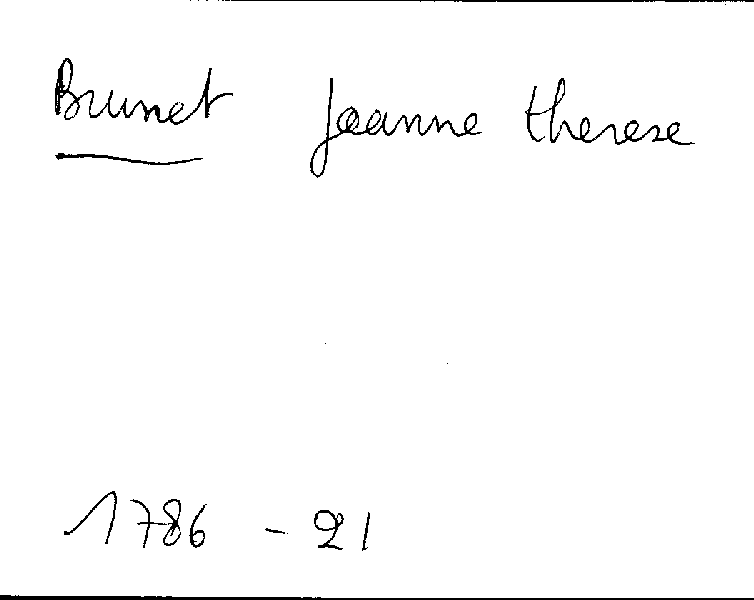 Brunet Jeanne therese
1786 - 21